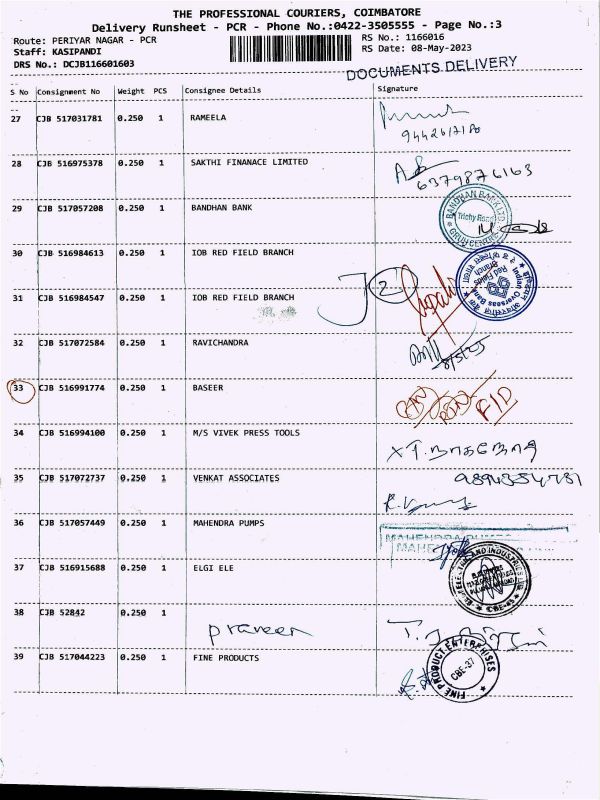 THE PROFESSIONAL COURIERS, COIMBATORE
Delivery Runsheet - PCR - Phone No.:0422-3505555 - Page No.:3
Route: PERIYAR NAGAR - PCR
RS No.: 1166016
Staff: KASIPANDI
RS Date: 08-May-2023
DRS No.: DCJB116601603
DOCUMENTS DELIVERY
S No Consignment No Weight PCS Consignee Details Signature
27 CJB 517031781 0.250 1 RAMEELA
28 CJB 516975378 0.250 1 SAKTHI FINANACE LIMITED
6379876163
29 CJB 517057208 0.250 1 BANDHAN BANK
BANDHAN BANK LTD
Trichy Road
30 CJB 516984613 0.250 1 IOB RED FIELD BRANCH
2
Indian Overseas Bank
Red Fields
Branch
31 CJB 516984547 0.250 1 IOB RED FIELD BRANCH
32 CJB 517072584 0.250 1 RAVICHANDRA
33 CJB 516991774 0.250 1 BASEER
34 CJB 516994100 0.250 1 M/S VIVEK PRESS TOOLS
35 CJB 517072737 0.250 1 VENKAT ASSOCIATES
36 CJB 517057449 0.250 1 MAHENDRA PUMPS
MAHENDRA PUMPS
37 CJB 516915688 0.250 1 ELGI ELE
38 CJB 52842 0.250 1
praveen
39 CJB 517044223 0.250 1 FINE PRODUCTS
FINE PRODUCT ENTERPRISES
CBE-37